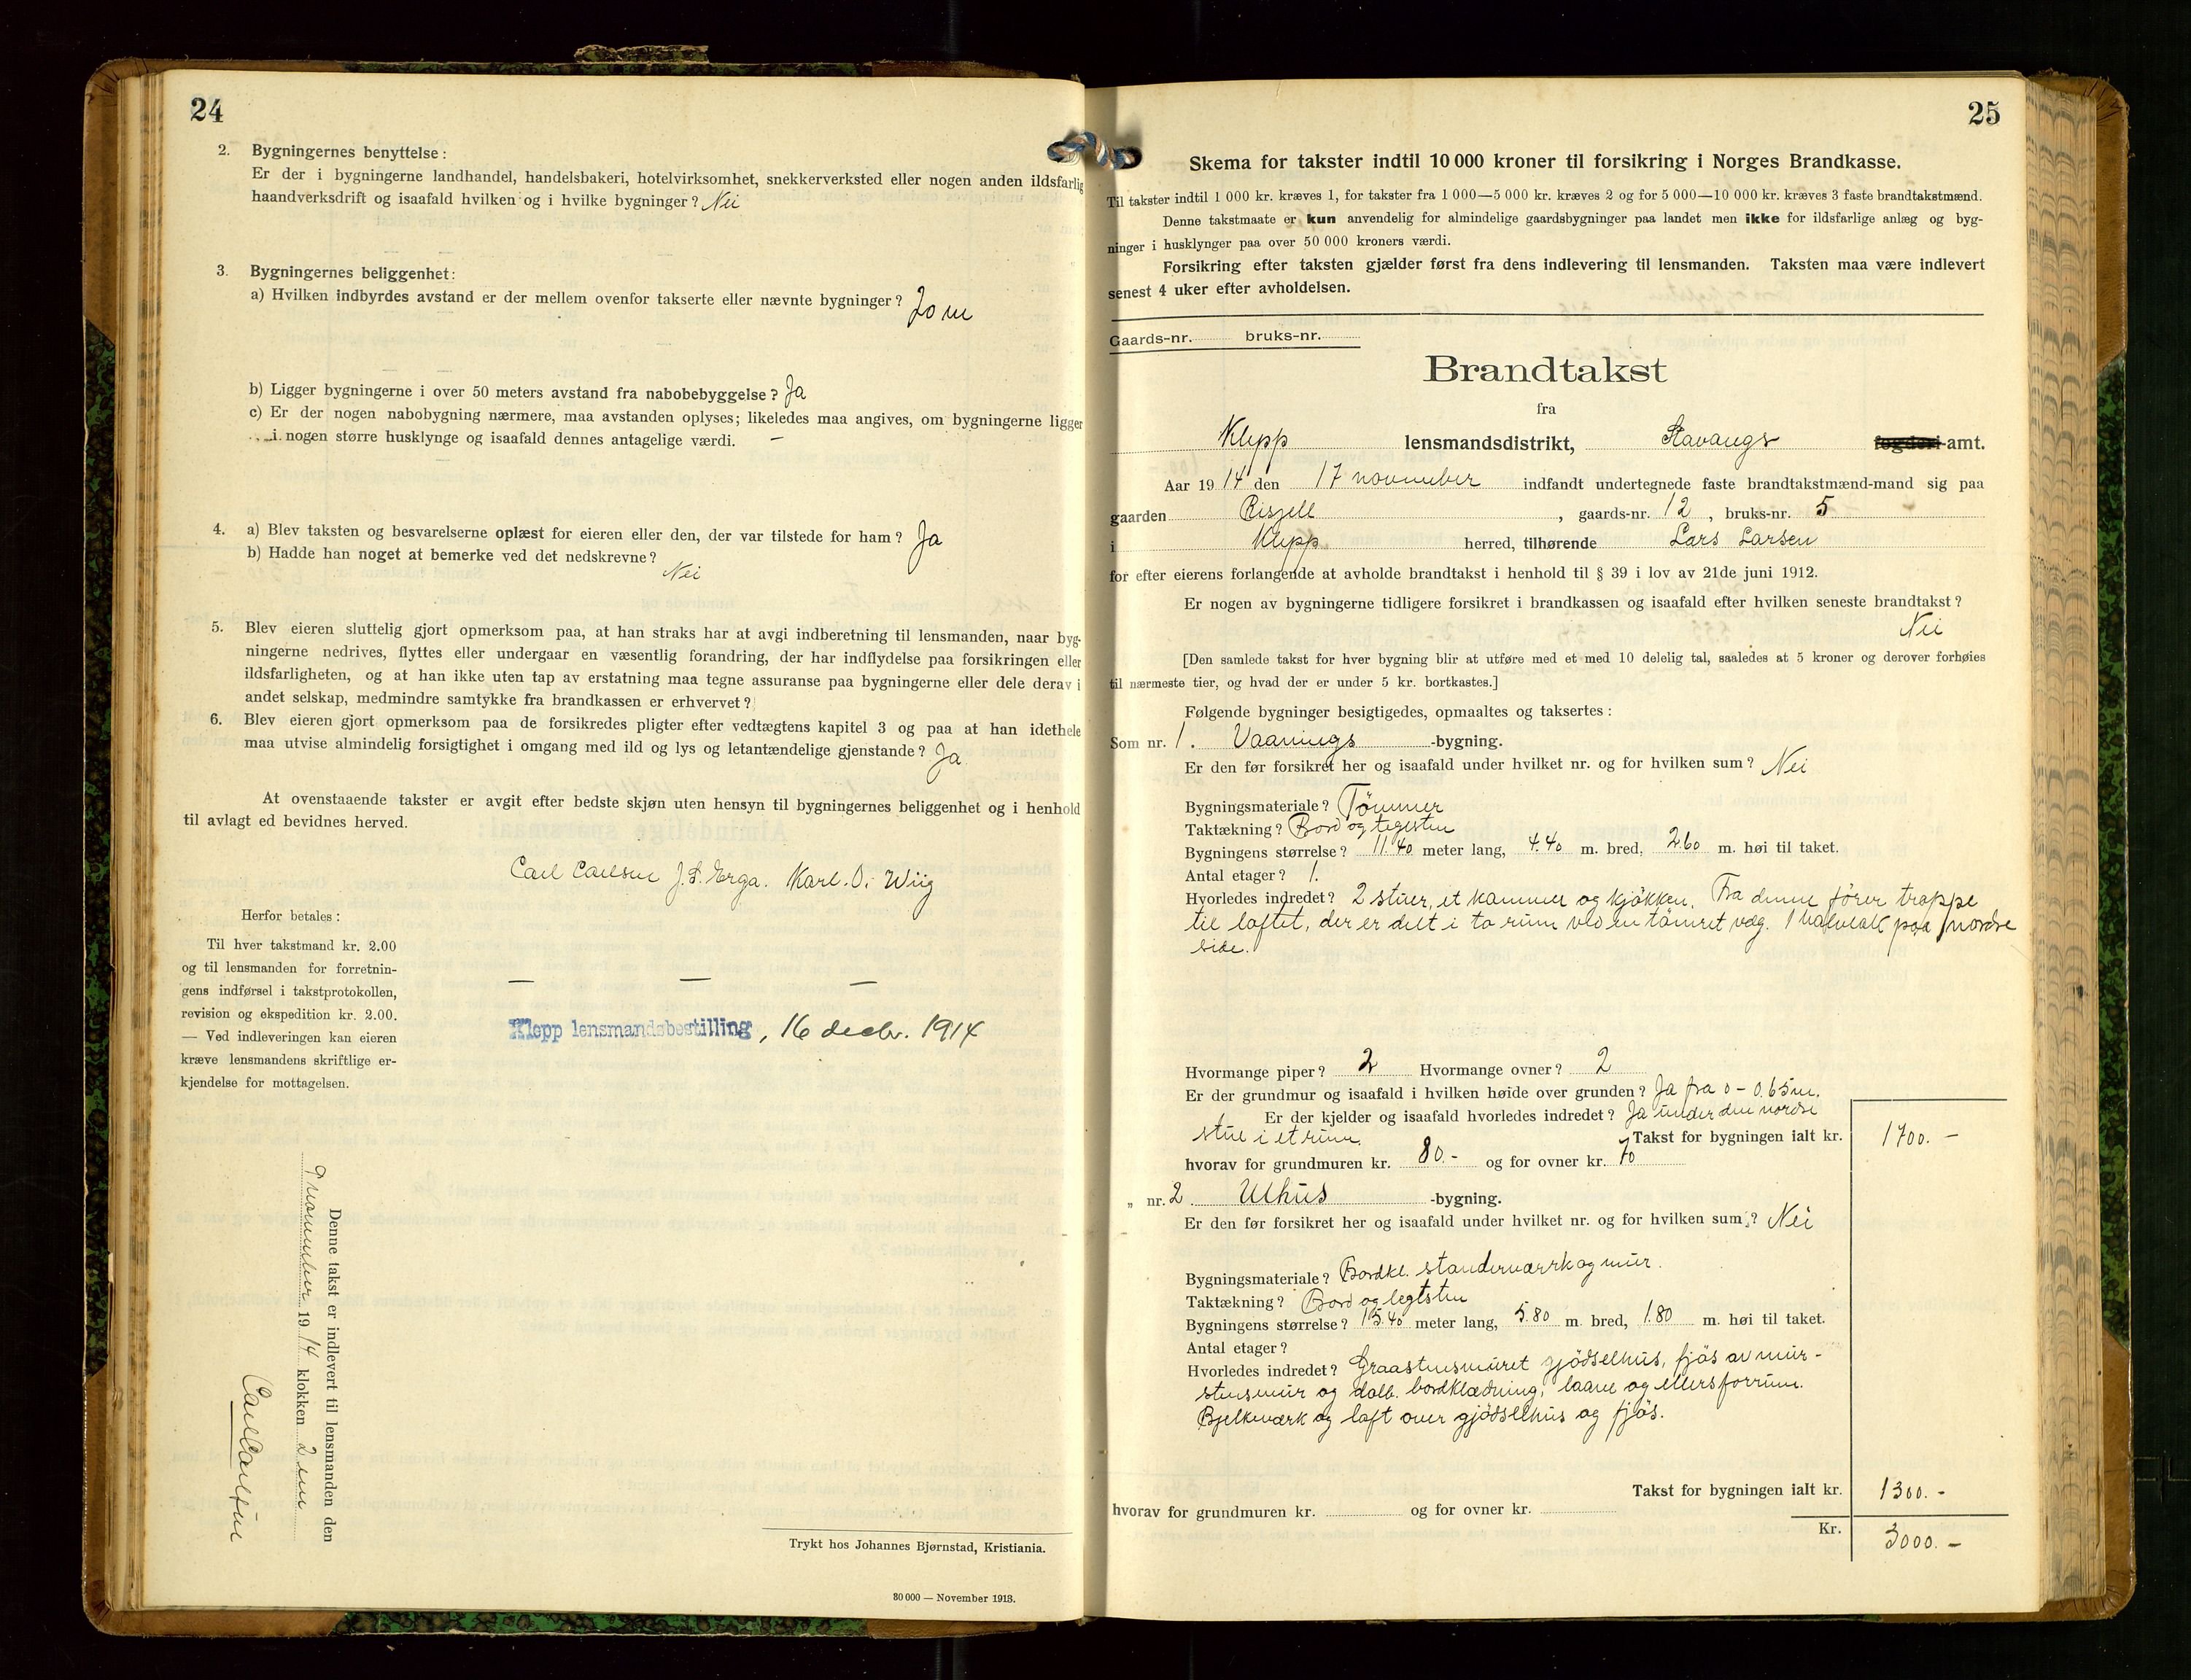 24
2. Bygningernes benyttelse:
Er der i bygningerne landhandel, handelsbakeri, hotelvirksomhet, snekkerverksted eller nogen anden ildsfarlig
haandverksdrift og isaafald hvilken og i hvilke bygninger? Nei
3. Bygningernes beliggenhet:
a) Hvilken indbyrdes avstand er der mellem ovenfor takserte eller nævnte bygninger?
b) Ligger bygningerne i over 50 meters avstand fra nabobebyggelse? Ja
c) Er der nogen nabobygning nærmere, maa avstanden oplyses; likeledes maa angives, om bygningerne ligger
i nogen større husklynge og isaafald dennes antagelige værdi. —
4. a) Blev taksten og besvarelserne oplæst for eieren eller den, der var tilstede for ham? Ja
b) Hadde han noget at bemerke ved det nedskrevne?
Nei
5. Blev eieren sluttelig gjort opmerksom paa, at han straks har at avgi indberetning til lensmanden, naar byg-
ningerne nedrives, flyttes eller undergaar en væsentlig forandring, der har indflydelse paa forsikringen eller
ildsfarligheten, og at han ikke uten tap av erstatning maa tegne assuranse paa bygningerne eller dele derav i
andet selskap, medmindre samtykke fra brandkassen er erhvervet?
6. Blev eieren gjort opmerksom paa de forsikredes pligter efter vedtægtens kapitel 3 og paa at han idethele
maa utvise almindelig forsigtighet i omgang med ild og lys og letantændelige gjenstande? Ja
At ovenstaaende takster er avgit efter bedste skjøn uten hensyn til bygningernes beliggenhet og i henhold
til avlagt ed bevidnes herved.
Carl Carlsen J. S. Erga. Karl. O. Wiig
Herfor betales:
Til hver takstmand kr. 2.00
og til lensmanden for forretnin-
gens indførsel i takstprotokollen,
revision og ekspedition kr. 2.00.
— Ved indleveringen kan eieren
kræve lensmandens skriftlige er-
kjendelse for mottagelsen.
— — —
Klepp lensmandsbestilling, 16 decbr. 1914
Denne takst er indlevert til lensmanden den
november 1914 klokken 2 em
Carl Carlsen
Trykt hos Johannes Bjørnstad, Kristiania.
30 000 — November 1913.
25
Skema for takster indtil 10 000 kroner til forsikring i Norges Brandkasse.
Til takster indtil 1 000 kr. kræves 1, for takster fra 1 000—5 000 kr. kræves 2 og for 5 000—10 000 kr. kræves 3 faste brandtakstmænd.
Denne takstmaate er kun anvendelig for almindelige gaardsbygninger paa landet men ikke for ildsfarlige anlæg og byg-
ninger i husklynger paa over 50 000 kroners værdi.
Forsikring efter taksten gjælder først fra dens indlevering til lensmanden. Taksten maa være indlevert
senest 4 uker efter avholdelsen.
Gaards-nr. bruks-nr.
Brandtakst
fra
Klepp lensmandsdistrikt, Stavangs fogderi amt.
Aar 1914 den 17 november indfandt undertegnede faste brandtakstmænd-mand sig paa
gaarden , gaards-nr. 12, bruks-nr. 5
i Klepp herred, tilhørende Lars Larsen
for efter eierens forlangende at avholde brandtakst i henhold til § 39 i lov av 21de juni 1912.
Er nogen av bygningerne tidligere forsikret i brandkassen og isaafald efter hvilken seneste brandtakst?
Nei
[Den samlede takst for hver bygning blir at utføre med et med 10 delelig tal, saaledes at 5 kroner og derover forhøies
til nærmeste tier, og hvad der er under 5 kr. bortkastes.]
Følgende bygninger besigtigedes, opmaaltes og taksertes:
Som nr. 1. Vaanings -bygning.
Er den før forsikret her og isaafald under hvilket nr. og for hvilken sum? Nei
Bygningsmateriale? Tømmer
Taktækning? Bord og teglsten
Bygningens størrelse? 11.40 meter lang, 4.40 m. bred, 2.60 m. høi til taket.
Antal etager? 1.
Hvorledes indredet? 2 stuer, et kammer og kjøkken. Fra denne fører trappe
til loftet, der er delt i to rum ved en tømret væg. 1 halvtak paa nordre
side.
Hvormange piper? 2 Hvormange ovner? 2
Er der grundmur og isaafald i hvilken høide over grunden? Ja fra 0 - 0.65 m.
Er der kjelder og isaafald hvorledes indredet? Ja under den nordre
stue i et rum. Takst for bygningen ialt kr. 1700. —
hvorav for grundmuren kr. 80.- og for ovner kr. 70
„ nr. 2 Uthus -bygning.
Er den før forsikret her og isaafald under hvilket nr. og for hvilken sum? Nei
Bygningsmateriale? Bordkl. standerværk og mur.
Taktækning? Bord og teglsten
Bygningens størrelse? 15.40 meter lang, 5.80 m. bred, 1.80 m. høi til taket.
Antal etager?
Hvorledes indredet? Graastensmuret gjødselhus, fjøs av mur-
stensmur og dobb. bordklædning, laave og ellers forrum.
Bjelkeværk og loft over gjødselhus og fjøs.
Takst for bygningen ialt kr. 1300. -
hvorav for grundmuren kr. og for ovner kr.
Kr. 3000. —